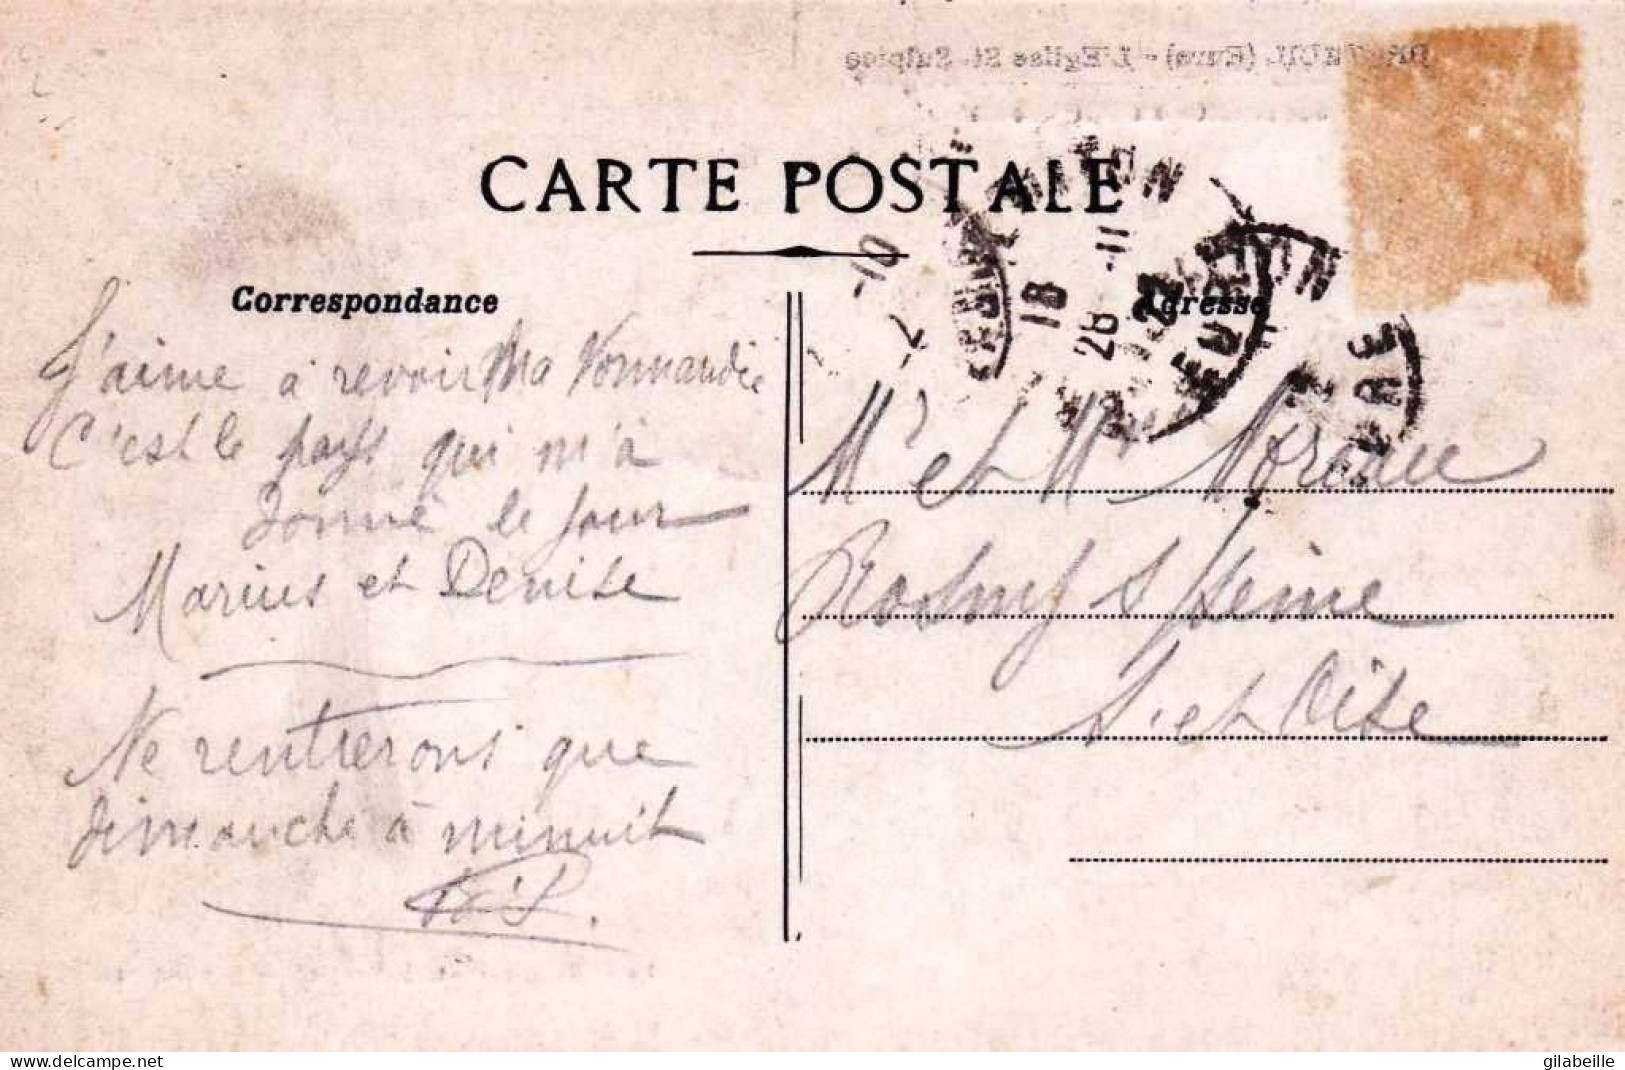 CARTE POSTALE
Correspondance
Adresse
J'aime à revoir Ma Normandie
C'est le pays qui m'à
donné le jour
Marius et Denise
Ne rentrerons que
dimanche à minuit
Mr et Me Moreau
Rosny s/ Seine
S. et Oise
L'Eglise St. Sulpice
www.delcampe.net
gilabeille